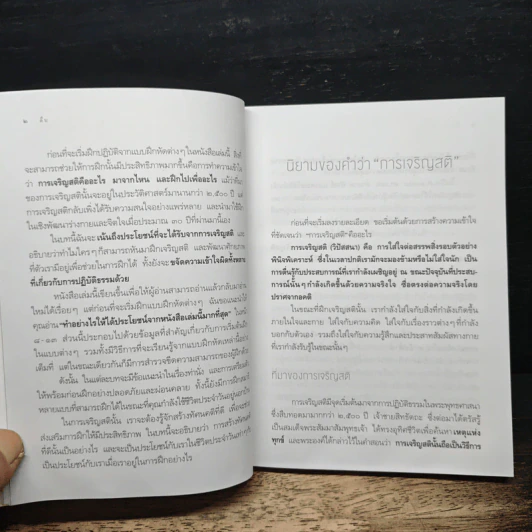 ๒
ก่อนที่จะเริ่มฝึกปฏิบัติจากแบบฝึกหัดต่างๆ ในหนังสือเล่มนี้ สิ่งที่
จะสามารถช่วยให้การฝึกนั้นมีประสิทธิภาพมากขึ้นคือการทำความเข้าใจ
ว่า การเจริญสติคืออะไร มาจากไหน และฝึกไปเพื่ออะไร แม้ว่า
ของการเจริญสตินั้นจะอยู่ในประวัติศาสตร์มานานกว่า ๒,๕๐๐ ปี
การเจริญสติกลับเพิ่งได้รับความสนใจอย่างแพร่หลาย และนำมาใช้
ในเชิงพัฒนาร่างกายและจิตใจเมื่อประมาณ ๓๐ ปีที่ผ่านมานี้เอง
ในบทนี้ฉันจะเน้นถึงประโยชน์ที่จะได้รับจากการเจริญสติ และ
อธิบายว่าทำไมใครๆ ก็สามารถหันมาฝึกเจริญสติ และพัฒนาศักยภาพ
ที่ตัวเรามีอยู่เพื่อช่วยในการฝึกได้ ทั้งยังจะขจัดความเข้าใจผิดทั้งหลาย
ที่เกี่ยวกับการปฏิบัติธรรมด้วย
หนังสือเล่มนี้เขียนขึ้นเพื่อให้ผู้อ่านสามารถอ่านแล้วกลับมา
ใหม่ได้เรื่อยๆ แต่ก่อนที่จะเริ่มฝึกแบบฝึกหัดต่างๆ ฉันขอแนะนำให้
คุณอ่าน "ทำอย่างไรให้ได้ประโยชน์จากหนังสือเล่มนี้มากที่สุด"
๘-๑๓ ซึ่งประกอบไปด้วยข้อมูลที่สำคัญเกี่ยวกับการเริ่มต้น
ในแบบต่างๆ รวมทั้งมีวิธีการที่จะเรียนรู้จากแบบฝึกหัดเหล่านี้
เต็มที่ แต่ในขณะเดียวกันก็มีการสำรวจขีดความสามารถของผู้ฝึก
ดังนั้น ในแต่ละบทจะมีข้อแนะนำในเรื่องท่านั่ง และการเตรียมตัว
ให้พร้อมก่อนฝึกอย่างปลอดภัยและผ่อนคลาย ทั้งนี้ยังมีการฝึก
หลายแบบที่สามารถฝึกได้ในขณะที่คุณกำลังใช้ชีวิตประจำวันอยู่
ในการเจริญสตินั้น เราจะต้องรู้จักสร้างทัศนคติที่ดี เพื่อ
ส่งเสริมการฝึกให้มีประสิทธิภาพ ในบทนี้จะอธิบายว่า การสร้างทัศนคติ
ที่ดีนั้นเป็นอย่างไร และจะเป็นประโยชน์กับเราในชีวิตประจำวัน
เป็นประโยชน์กับเราเมื่อเราอยู่ในการฝึกอย่างไร
นิยามของคำว่า "การเจริญสติ"
ก่อนที่จะเริ่มลงรายละเอียด ขอเริ่มต้นด้วยการสร้างความเข้าใจ
ที่ชัดเจนว่า "การเจริญสติ" คืออะไร
การเจริญสติ (วิปัสสนา) คือ การใส่ใจต่อสรรพสิ่งรอบตัวอย่าง
พินิจพิเคราะห์ ซึ่งในเวลาปกติเรามักจะมองข้ามหรือไม่ใส่ใจนัก เป็น
การตื่นรู้กับประสบการณ์ที่เรากำลังเผชิญอยู่ ณ ขณะปัจจุบันที่ประสบ-
การณ์นั้นๆ กำลังเกิดขึ้นด้วยความจริงใจ ซื่อตรงต่อความจริงโดย
ปราศจากอคติ
ในขณะที่ฝึกเจริญสตินั้น เรากำลังใส่ใจกับสิ่งที่กำลังเกิดขึ้น
ภายในใจและกาย ใส่ใจกับความคิด ใส่ใจกับเรื่องราวต่างๆ ที่กำลัง
บอกกับตัวเอง รวมถึงใส่ใจกับความรู้สึกและประสาทสัมผัสทางกาย
ที่เรากำลังรับรู้ในขณะนั้นๆ
ที่มาของการเจริญสติ
การเจริญสติมีจุดเริ่มต้นมาจากการปฏิบัติธรรมในพระพุทธศาสนา
ซึ่งสืบทอดมามากกว่า ๒,๕๐๐ ปี เจ้าชายสิทธัตถะ ซึ่งต่อมาได้ตรัสรู้
เป็นสมเด็จพระสัมมาสัมพุทธเจ้า ได้ทรงอุทิศชีวิตเพื่อค้นหาเหตุแห่ง
ทุกข์ และพระองค์ได้กล่าวไว้ในคำสอนว่า การเจริญสตินั้นถือเป็นวิธีการ